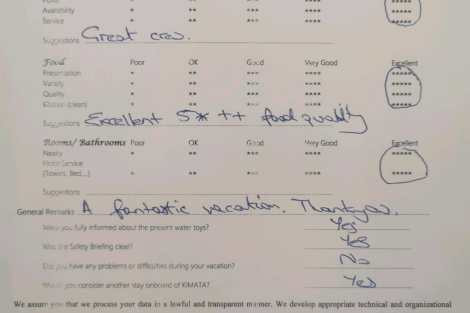 Availability * ** *** **** *****
Service * ** *** **** *****
Suggestions Great crew.
Food Poor OK Good Very Good Excellent
Presentation * ** *** **** *****
Variety * ** *** **** *****
Quality * ** *** **** *****
* ** *** **** *****
Suggestions Excellent 5* ++ food quality
Rooms/ Bathrooms Poor OK Good Very Good Excellent
Neatly * ** *** **** *****
Hotel Service
(Towels, Bed,...) * ** *** **** *****
Suggestions
General Remarks A fantastic vacation. Thankyou.
Were you fully informed about the present water toys? Yes
Was the Safety Briefing clear? Yes
Did you have any problems or difficulties during your vacation? No
Would you consider another stay onboard of KIMATA? Yes
We assure you that we process your data in a lawful and transparent manner. We develop appropriate technical and organizational